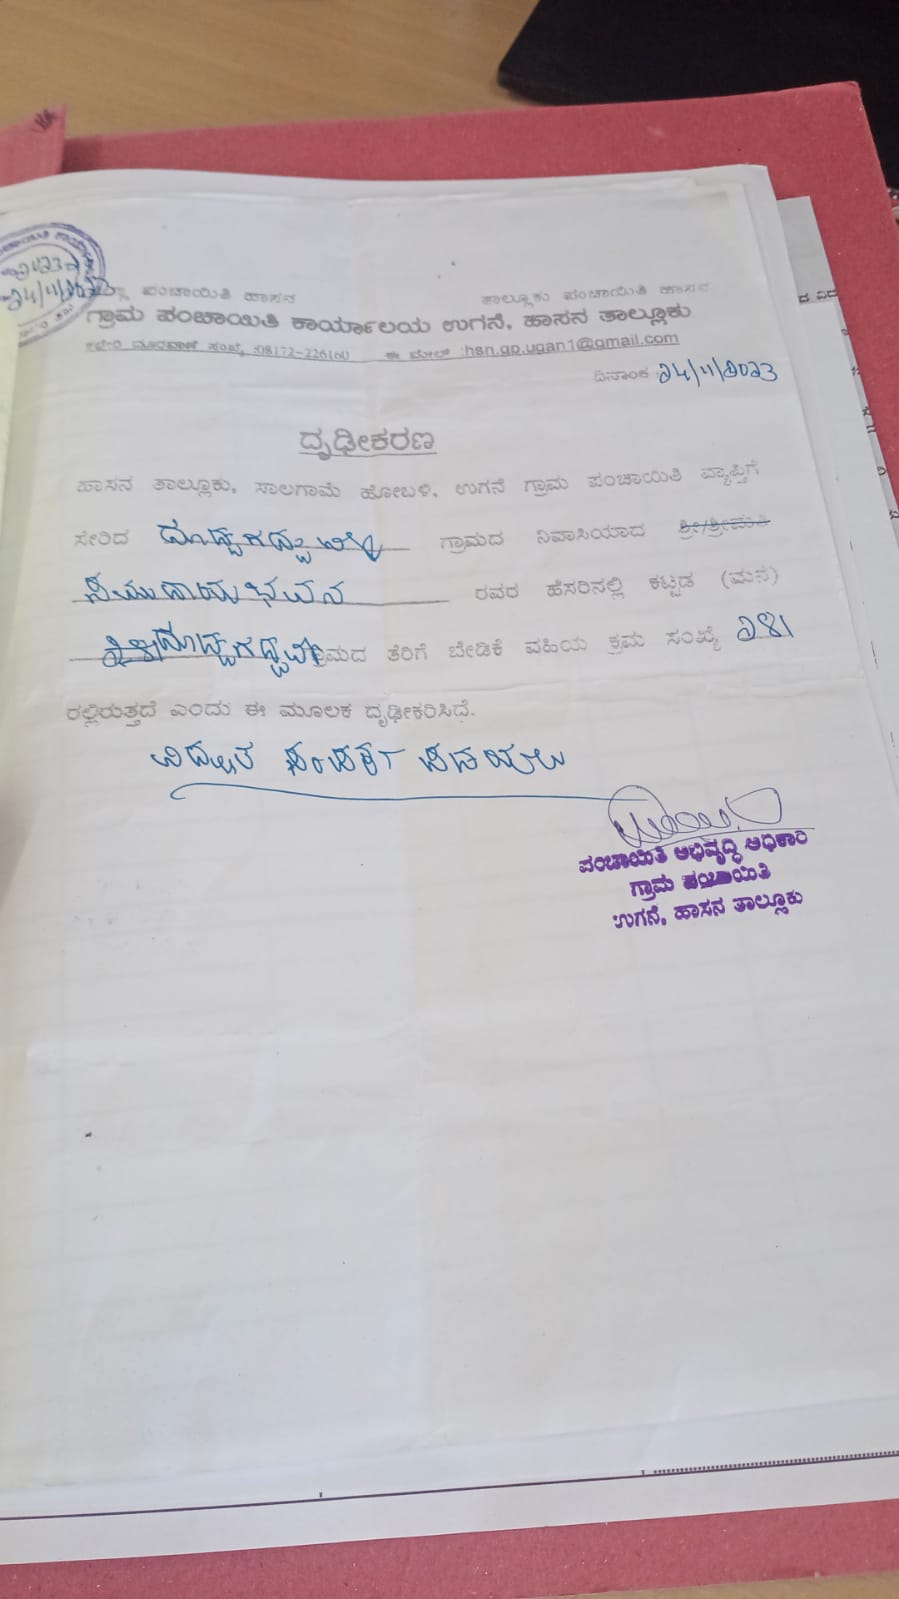 ಪಂಚಾಯಿತಿ ಹಾಸನ ತಾಲ್ಲೂಕು ಪಂಚಾಯಿತಿ ಹಾಸನ
ಗ್ರಾಮ ಪಂಚಾಯಿತಿ ಕಾರ್ಯಾಲಯ ಉಗನೆ, ಹಾಸನ ತಾಲ್ಲೂಕು
ಕಛೇರಿ ದೂರವಾಣಿ ಸಂಖ್ಯೆ :08172-226160 ಈ ಮೇಲ್ :hsn.gp.ugan1@gmail.com
ದಿನಾಂಕ :24/11/2023
ದೃಢೀಕರಣ
ಹಾಸನ ತಾಲ್ಲೂಕು, ಸಾಲಗಾಮೆ ಹೋಬಳಿ, ಉಗನೆ ಗ್ರಾಮ ಪಂಚಾಯಿತಿ ವ್ಯಾಪ್ತಿಗೆ
ಸೇರಿದ ದೊಡ್ಡಗಡ್ಡವಳ್ಳಿ ಗ್ರಾಮದ ನಿವಾಸಿಯಾದ ಶ್ರೀ/ಶ್ರೀಮತಿ
ಸಮುದಾಯ ಭವನ ರವರ ಹೆಸರಿನಲ್ಲಿ ಕಟ್ಟಡ (ಮನೆ)
ದೊಡ್ಡಗಡ್ಡವಳ್ಳಿ ಗ್ರಾಮದ ತೆರಿಗೆ ಬೇಡಿಕೆ ವಹಿಯ ಕ್ರಮ ಸಂಖ್ಯೆ 281
ರಲ್ಲಿರುತ್ತದೆ ಎಂದು ಈ ಮೂಲಕ ದೃಢೀಕರಿಸಿದೆ.
ವಿದ್ಯುತ್ ಸಂಪರ್ಕ ಪಡೆಯಲು
ಪಂಚಾಯಿತಿ ಅಭಿವೃದ್ಧಿ ಅಧಿಕಾರಿ
ಗ್ರಾಮ ಪಂಚಾಯಿತಿ
ಉಗನೆ, ಹಾಸನ ತಾಲ್ಲೂಕು